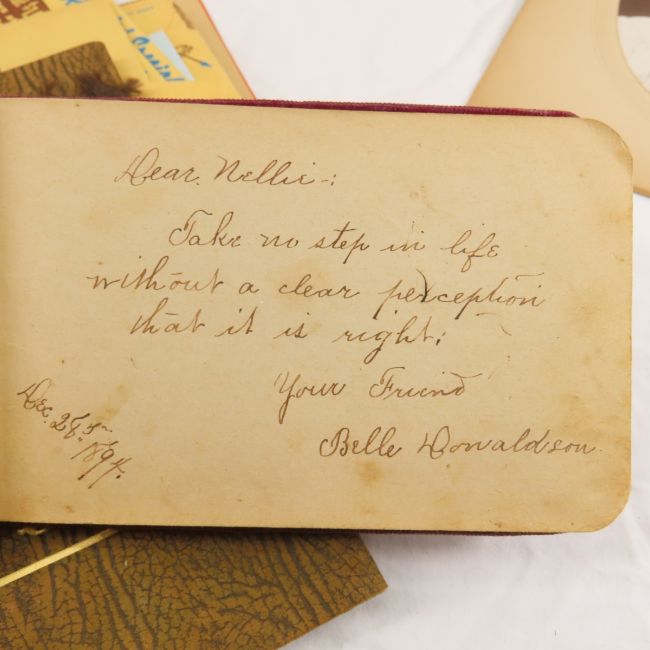 Dear. Nellie-:
Take no step in life
without a clear perception
that it is right;
Your Friend
Belle Donaldson.
Dec. 28
1894.